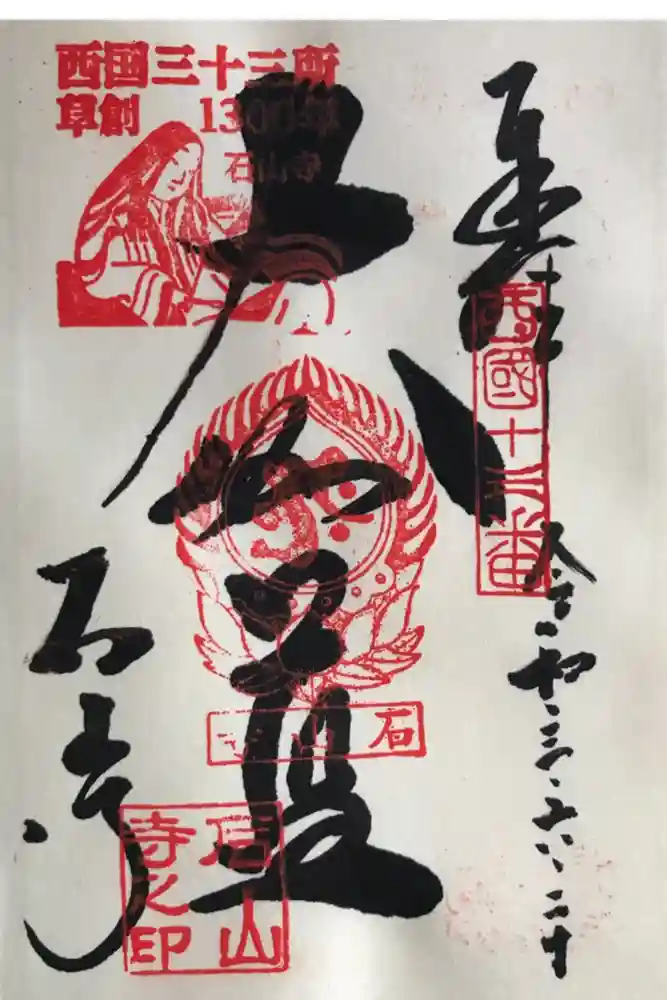 西国三十三所
草創 1300年
石山寺
奉拝
西國十三番
令和三、六、二十
石山寺
石山寺
石山
寺之印